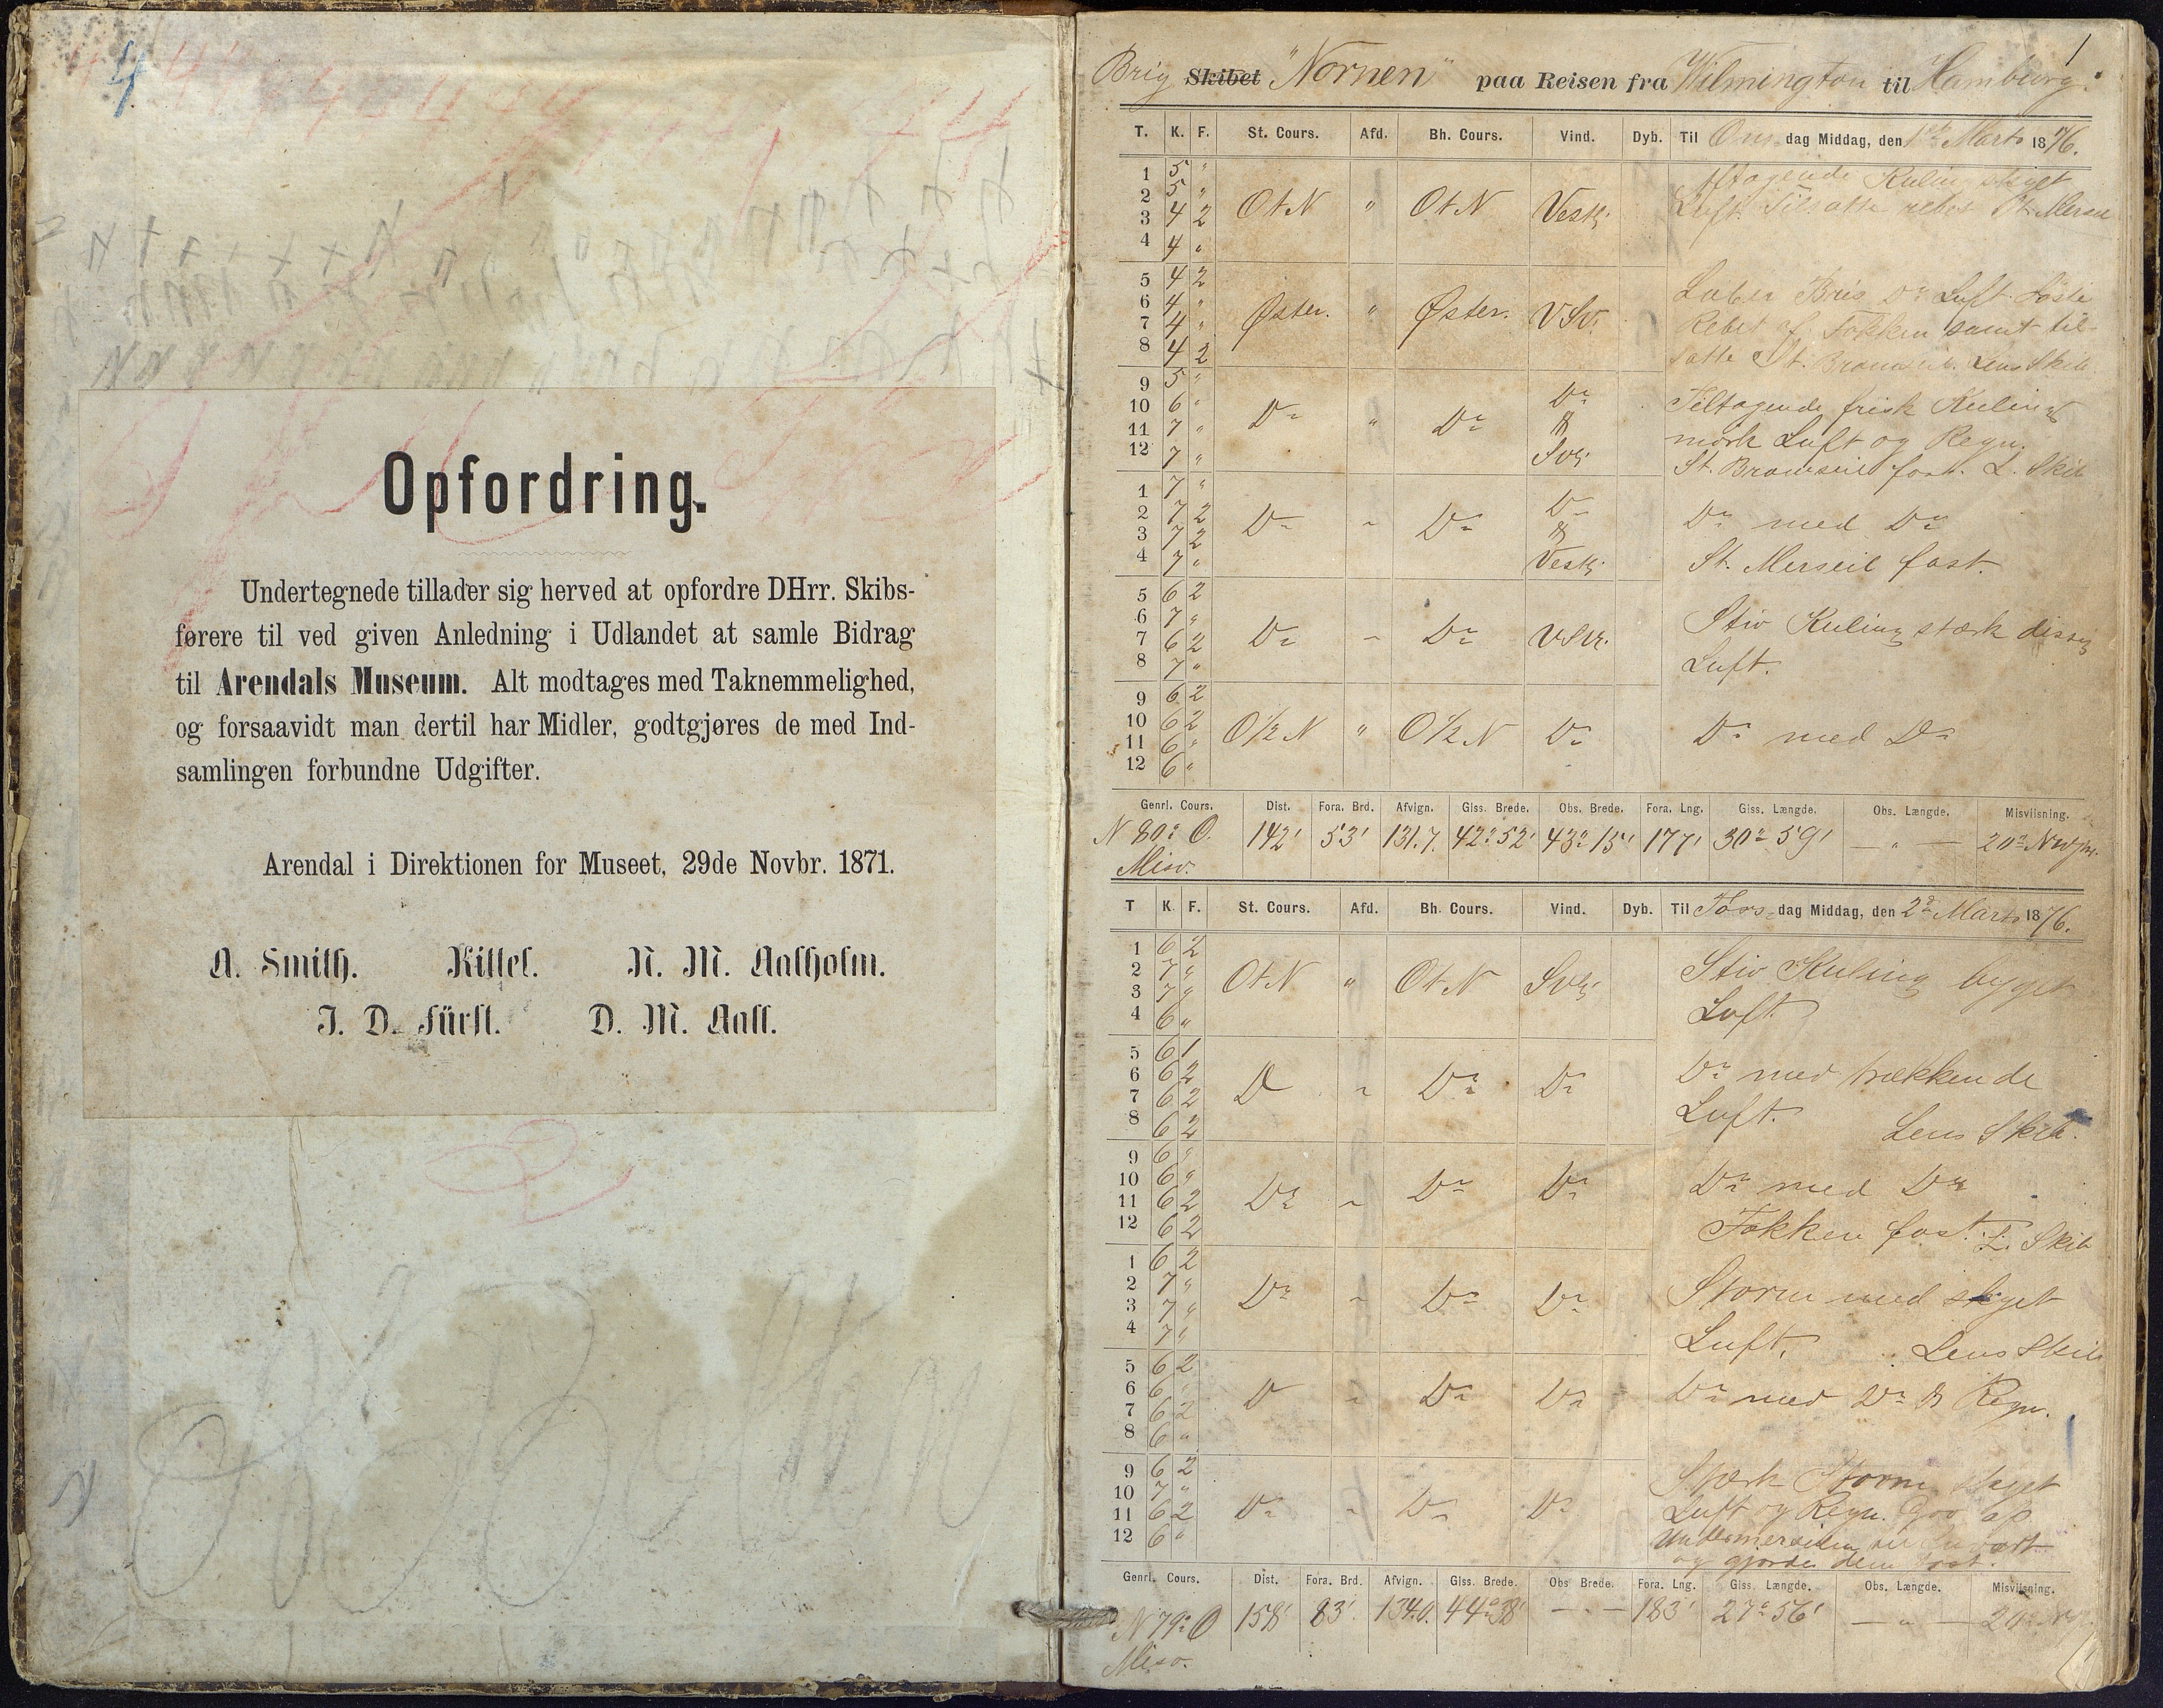 4
Opfordring.
Undertegnede tillader sig herved at opfordre DHrr. Skibs-
førere til ved given Anledning i Udlandet at samle Bidrag
til Arendals Museum. Alt modtages med Taknemmelighed,
og forsaavidt man dertil har Midler, godtgjøres de med Ind-
samlingen forbundne Udgifter.
Arendal i Direktionen for Museet, 29de Novbr. 1871.
A. Smith. Kittel. N. M. Aalholm.
J. D. Fürst. D. M. Aall.
1
Brig Skibet "Nornen" paa Reisen fra Wilmington til Hamburg.
T. K. F. St. Cours. Afd. Bh. Cours. Vind. Dyb. Til Ons dag Middag, den 1ste Marts 1876.
1 5 "
2 5 "
3 4 2 OtN " OtN Vestl.
4 4 "
Aftagende Kuling skyet
Luft. Tilsatte rebet St. Merseil
5 4 2
6 4 "
7 4 " Øster. " Øster. VSv.
8 4 2
Laber Bris Do Luft Løste
Rebet af Fokken samt til-
satte St. Bramseil. Lens Skib
9 5 "
10 6 "
11 7 " Do " Do Do & Svl.
12 7 "
Tiltagende frisk Kuling
mørk Luft og Regn.
St. Bramseil fast. L. Skib
1 7 "
2 7 2
3 7 2 Do " Do Do & Vestl.
4 7 "
Do med Do
St. Merseil fast.
5 6 2
6 7 "
7 6 2 Do " Do VSv.
8 7 "
Stiv Kuling stærk disig
Luft.
9 6 2
10 6 2
11 6 " O 1/2 N " O 1/2 N Do
12 6 "
Do med Do
Genrl. Cours. Dist. Fora. Brd. Afvign. Giss. Brede. Obs. Brede. Fora. Lng. Giss. Længde. Obs. Længde. Misviisning.
N 80° O. 142' 53' 131.7. 42° 52' 43° 15' 177' 30° 59' — " — 20°
Misv.
T K. F. St. Cours. Afd. Bh. Cours. Vind. Dyb. Til Tors dag Middag, den 2den Marts 1876.
1 6 2
2 7 "
3 7 " OtN " OtN Svl.
4 6 "
Stiv Kuling byget
Luft
5 6 1
6 6 2
7 6 2 Do " Do Do
8 6 2
Do med trækkende
Luft. Lens Skib.
9 6 "
10 6 "
11 6 2 Do " Do Do
12 6 2
Do med Do
Fokken fast. L. Skib
1 6 2
2 7 "
3 7 " Do " Do Do
4 7 "
Storm med skyet
Luft. Lens Skib
5 6 2
6 6 "
7 6 2 Do " Do Do
8 6 "
Do med Do & Regn.
9 6 2
10 7 "
11 6 2 Do " Do Do
12 6 "
Stærk Storm
Luft og Regn. op
Undermerseilen
og gjorde dem fast.
Genrl. Cours. Dist. Fora. Brd. Afvign. Giss. Brede. Obs Brede. Fora. Lng. Giss. Længde. Obs. Længde. Misviisning.
N 79° O 158' 83' 134.0. 44° 38' — " — 183' 27° 56' — " — 20°
Misv.